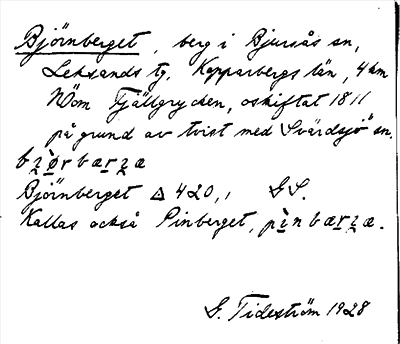 Björnberget, berg i Bjursås sn,
Leksands tg, Kopparbergs län, 4 km
NÖm Fjällgrycken, oskiftat 1811
på grund av tvist med Svärdsjö sn.
Björnberget △ 420,1 GS.
Kallas också Pinberget,
G. Tideström 1928